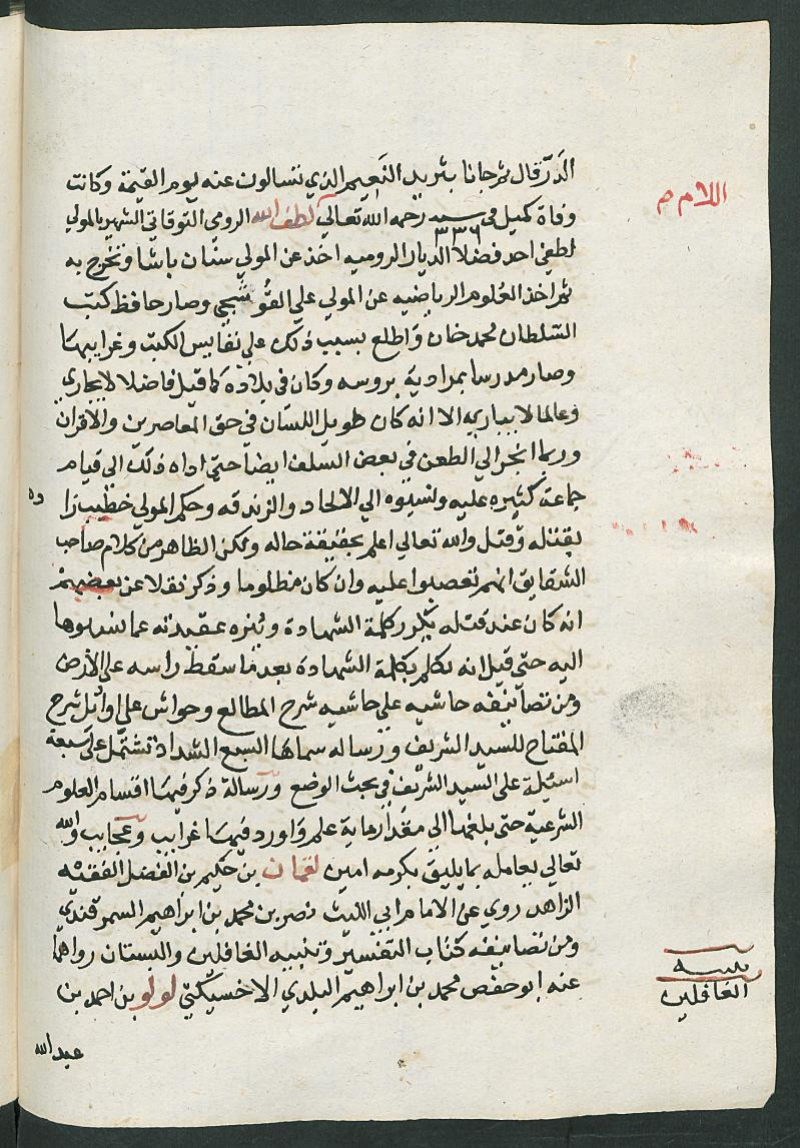 الدر قال ثم جانا بثريد النعيم الذي تسالون عنه يوم القيمة وكانت
وفاة كميل في سنه ٣٣٦ رحمه الله تعالي لطف الله الرومي التوقاتي الشهير بالمولي
لطفي احد فضلا الديار الروميه اخذ عن المولي سنان باشا وتخرج به
ثم اخذ العلوم الرياضيه عن المولي علي القوشجي وصار حافظ كتب
السلطان محمد خان واطلع بسبب ذلك علي نفايس الكتب وغرايبها
وصار مدرسا بمرادية بروسه وكان في بلاده كما قيل فاضلا لا يجاري
وعالما لا يباريه الا انه كان طويل اللسان في حق المعاصرين والاقران
وربما انجر الي الطعن في بعض السلف ايضا حتي اداه ذلك الي قيام
جماعة كثيره عليه ونسبوه الي الالحاد والزندقه وحكم المولي خطيب زا
ده
بقتله وقتل والله تعالي اعلم بحقيقة حاله ولكن الظاهر من كلام صاحب
الشقايق انهم تعصبوا عليه وان كان مظلوما وذكر نقلا عن بعضهم
انه كان عند قتله يكرر كلمة الشهادة وينزه عقيدته عما نسبوها
اليه حتي قيل انه تكلم بكلمة الشهادة بعد ما سقط راسه علي الارض
ومن تصانيفه حاشيه علي حاشيه شرح المطالع وحواش علي اوائل شرح
المفتاح للسيد الشريف ورساله سماها السبع الشداد تشتمل علي سبعة
اسئلة علي السيد الشريف في بحث الوضع ورسالة ذكر فيها اقسام العلوم
الشرعية حتي بلغها الي مقدار ماية علم واورد فيها غرايب وعجايب والله
تعالي يعامله بما يليق بكرمه امين لقمان بن حكيم بن الفضل الفقيه
الزاهد روي عن الامام ابي الليث نصر بن محمد بن ابراهيم السمرقندي
ومن تصانيفه كتاب التفسير وتنبيه الغافلين والبستان رواهما
عنه ابو حفص محمد بن ابراهيم البلدي الاخسيكتي لولو بن احمد بن
عبد الله
اللام م
تنبيه
الغافلين